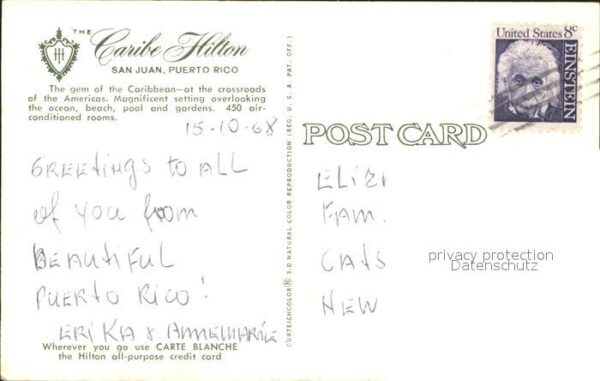 THE
Caribe Hilton
SAN JUAN, PUERTO RICO
The gem of the Caribbean—at the crossroads
of the Americas. Magnificent setting overlooking
the ocean, beach, pool and gardens. 450 air-
conditioned rooms.
15-10-68
GREETINGS to ALL
of you from
BEAUTIFUL
PUERTO RICO!
ERIKA & ANNEMARIE
Wherever you go use CARTE BLANCHE
the Hilton all-purpose credit card
CURTEICHCOLOR® 3-D NATURAL COLOR REPRODUCTION (REG. U. S. A. PAT. OFF.)
United States 8c
EINSTEIN
POST CARD
FAM.
CATS
NEW
privacy protection
Datenschutz